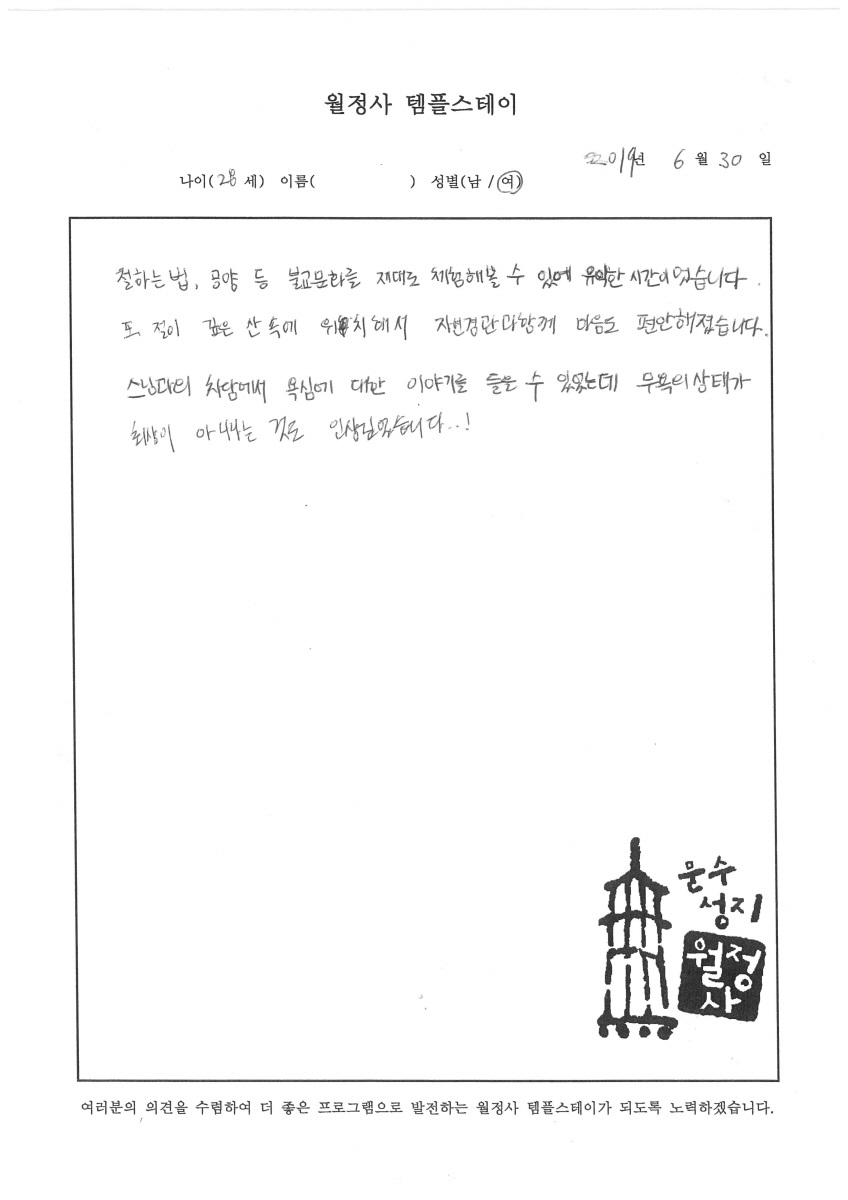 월정사 템플스테이
2019년 6월 30일
나이(28세) 이름( ) 성별(남/여)
절하는 법, 공양 등 불교문화를 제대로 체험해볼 수 있에 유익한 시간이었습니다.
또 절이 깊은 산 속에 위치해서 자연경관과함께 마음도 편안해졌습니다.
스님과의 차담에서 욕심에 대한 이야기를 들을 수 있었는데 무욕의 상태가
최상이 아니라는 것도 인상깊었습니다..!
문수
성지
월정
사
여러분의 의견을 수렴하여 더 좋은 프로그램으로 발전하는 월정사 템플스테이가 되도록 노력하겠습니다.